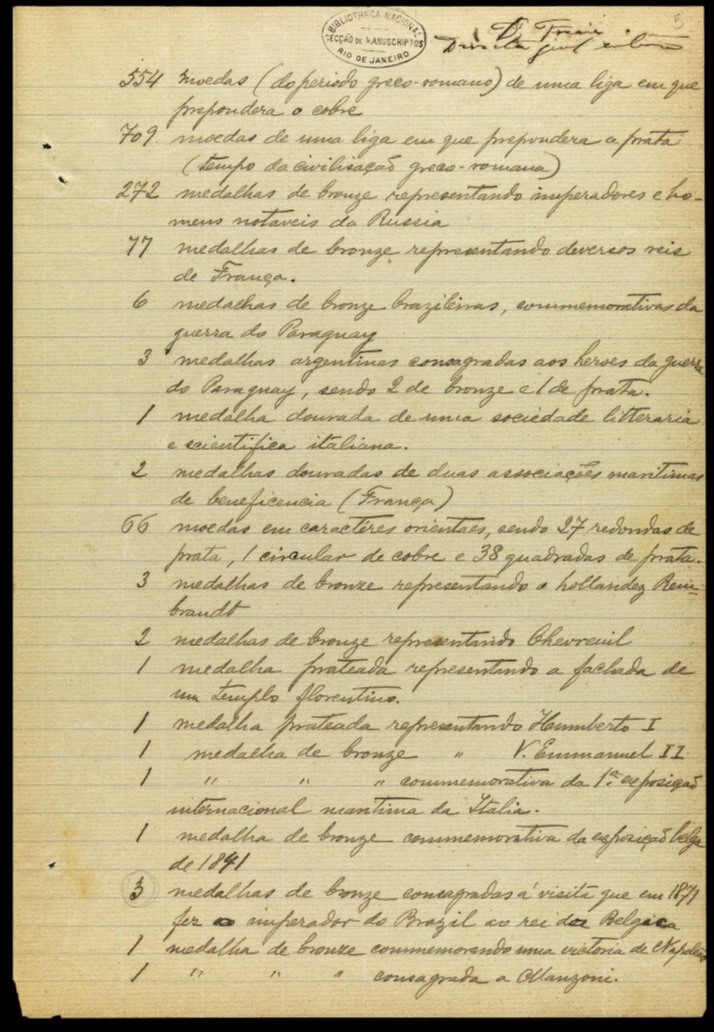 5
BIBLIOTHECA NACIONAL
SECÇÃO DE MANUSCRIPTOS
RIO DE JANEIRO
D.
554 moedas (do periodo greco-romano) de uma liga em que
prepondera o cobre
709 moedas de uma liga em que prepondera a prata
(tempo da civilisação greco-romana)
272 medalhas de bronze representando imperadores e ho-
mens notaveis da Russia
77 medalhas de bronze representando deversos reis
de França.
6 medalhas de bronze brazileiras, commemorativas da
guerra do Paraguay
3 medalhas argentinas consagradas aos heroes da guerra
do Paraguay, sendo 2 de bronze e 1 de prata.
1 medalha dourada de uma sociedade litteraria
e scientifica italiana.
2 medalhas douradas de duas associações maritimas
de beneficencia (França)
66 moedas em caractéres orientaes, sendo 27 redondas de
prata, 1 circular de cobre e 38 quadradas de prata.
3 medalhas de bronze representando o hollandez Rem-
brandt
2 medalhas de bronze representando Chevreuil
1 medalha prateada representando a fachada de
um templo florentino.
1 medalha prateada representando Humberto I
1 medalha de bronze " V. Emmanuel II
1 " " " commemorativa da 1ª exposição
internacional maritima da Italia.
1 medalha de bronze commemorativa da exposição belga
de 1841
3 medalhas de bronze consagradas á visita que em 1871
fez o imperador do Brazil ao rei da Belgica
1 medalha de bronze commemorando uma victoria de Napoleão
1 " " " consagrada a Manzoni.